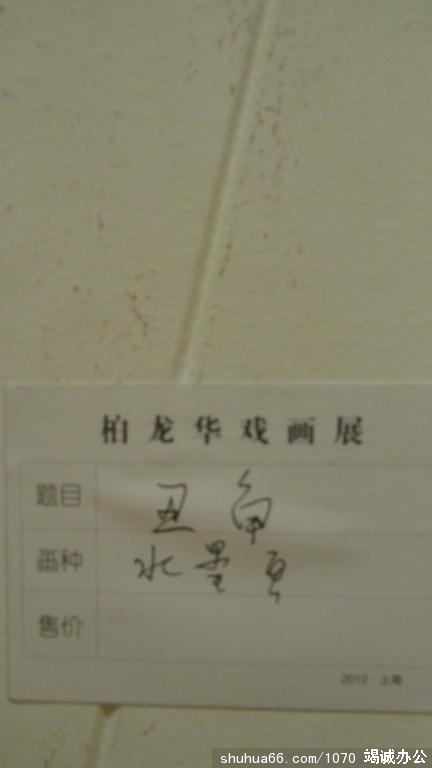 柏龙华戏画展
题目 丑角
画种 水墨
售价
2012·上海
shuhua66.com/1070 竭诚办公